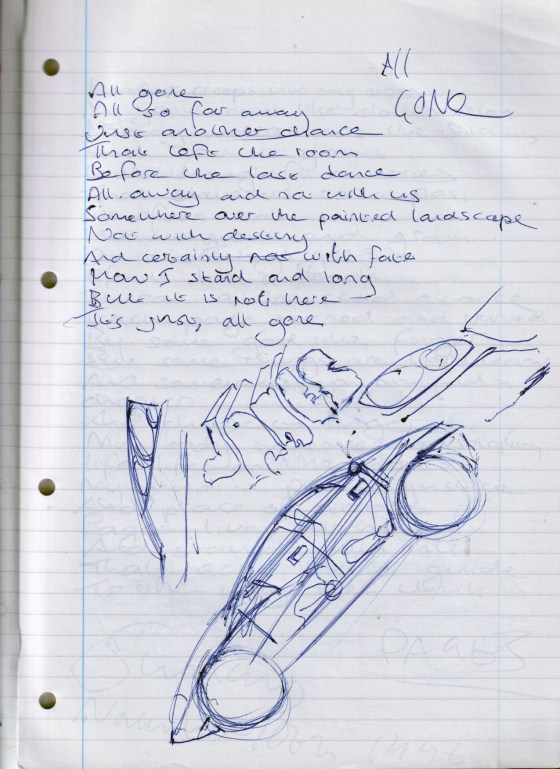 All
GONE
All gone
All so far away
Just another chance
That left the room
Before the last dance
All away and not with us
Somewhere over the painted landscape
Not with destiny
And certainly not with fate
How I stand and long
But it is not here
It's just, all gone